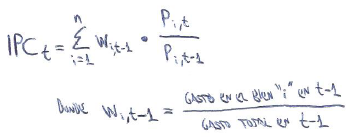 IPC_t = Σ_{i=1}^{n} W_{i,t-1} • P_{i,t} / P_{i,t-1}
DONDE W_{i,t-1} = GASTO EN EL BIEN "i" EN t-1 / GASTO TOTAL EN t-1